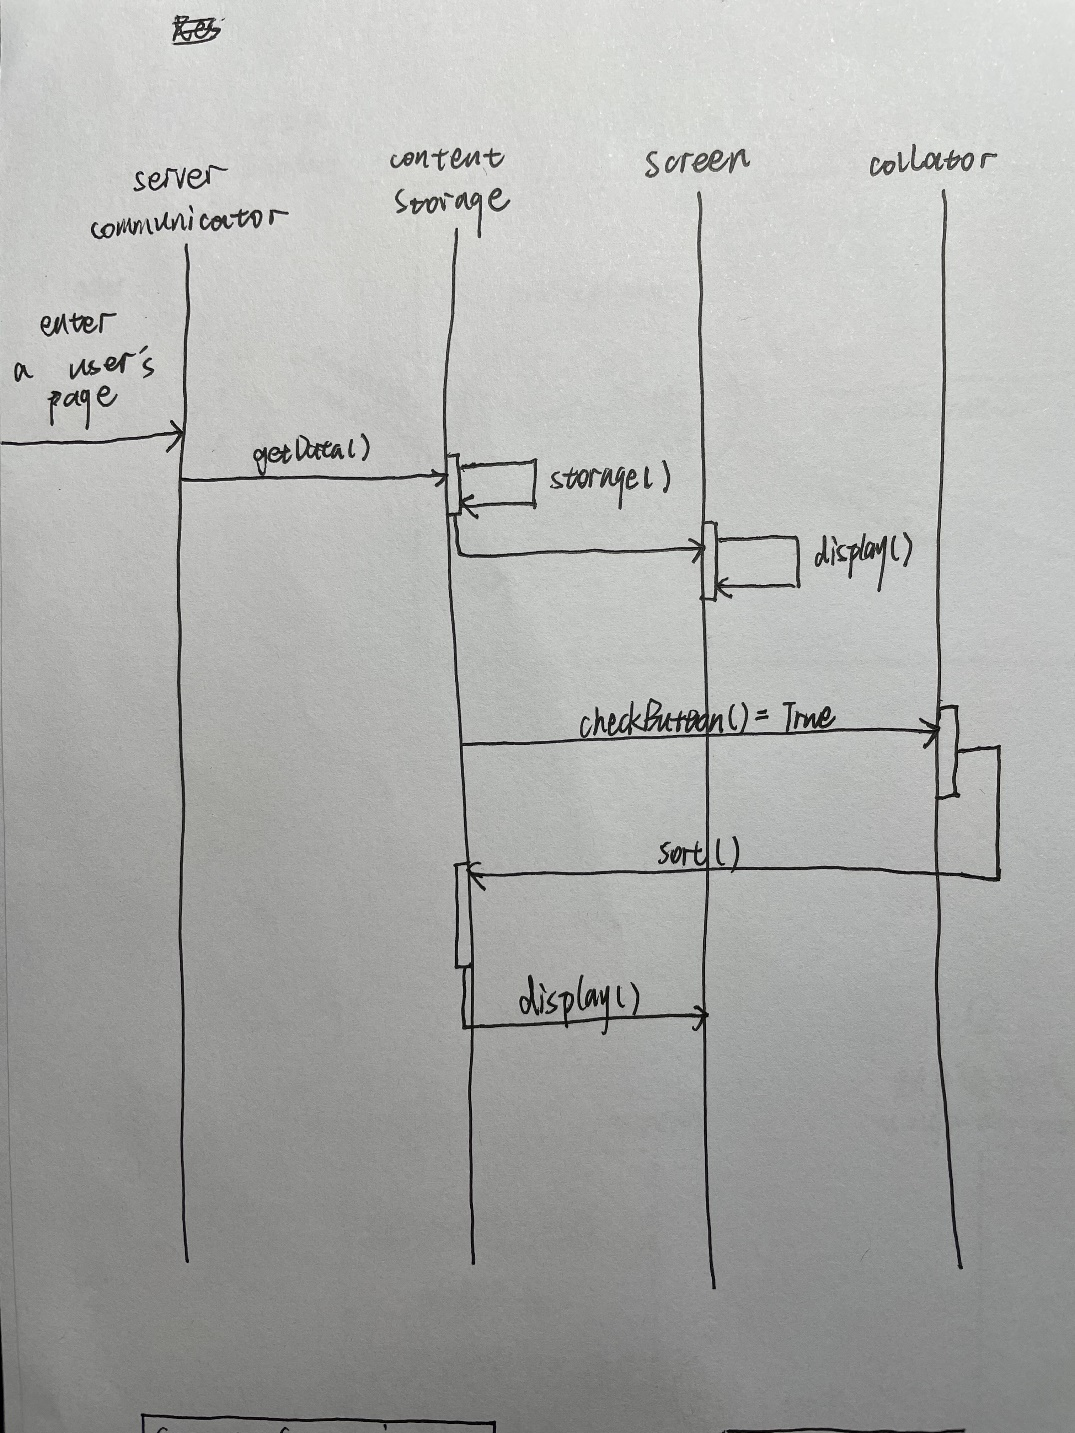 server
communicator
content
storage
screen
collator
enter
a user's
page
getData()
storage()
display()
checkButton() = True
sort()
display()